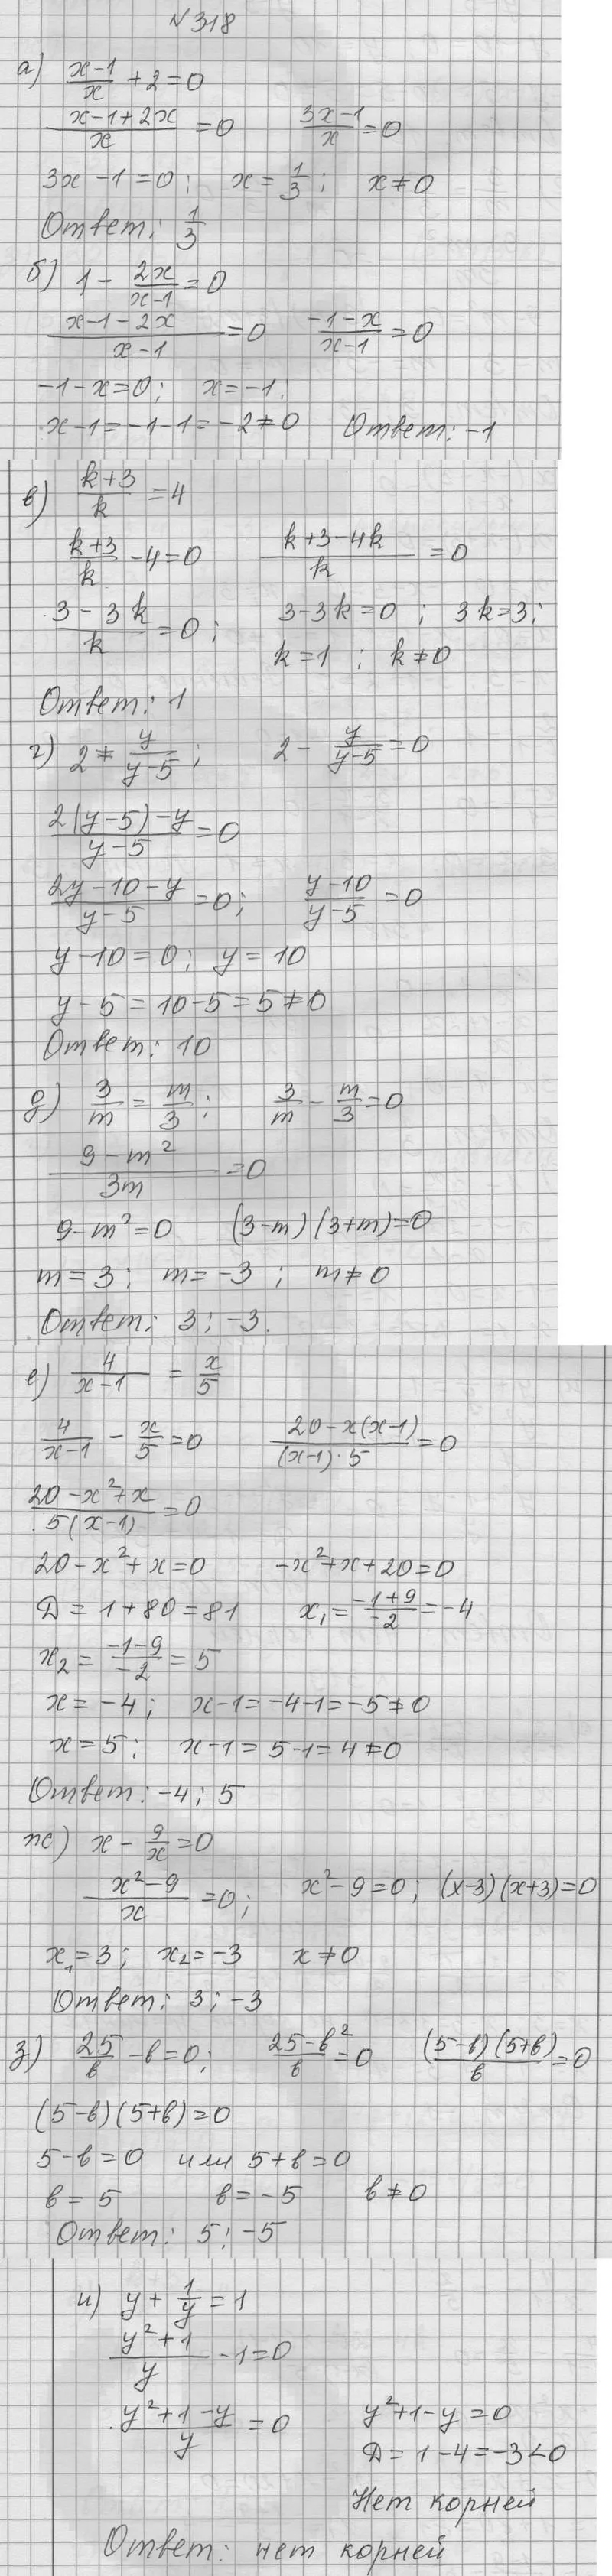 №318
а) (x-1)/x + 2 = 0
(x-1+2x)/x = 0    (3x-1)/x = 0
3x - 1 = 0;  x = 1/3;  x ≠ 0
Ответ: 1/3
б) 1 - 2x/(x-1) = 0
(x-1-2x)/(x-1) = 0    (-1-x)/(x-1) = 0
-1-x=0;  x=-1;
x-1=-1-1=-2≠0    Ответ: -1
в) (k+3)/k = 4
(k+3)/k - 4=0    (k+3-4k)/k = 0
(3-3k)/k = 0;    3-3k=0 ;  3k=3;
k=1 ;  k≠0
Ответ: 1
г) 2 = y/(y-5);    2 - y/(y-5) = 0
(2(y-5)-y)/(y-5) = 0
(2y-10-y)/(y-5) = 0;    (y-10)/(y-5) = 0
y-10=0;  y=10
y-5=10-5=5≠0
Ответ: 10
д) 3/m = m/3;    3/m - m/3 = 0
(9-m²)/3m = 0
9-m²=0    (3-m)(3+m)=0
m=3;  m=-3 ;  m≠0
Ответ: 3; -3.
е) 4/(x-1) = x/5
4/(x-1) - x/5 = 0    (20-x(x-1))/((x-1)·5) = 0
(20-x²+x)/(5(x-1)) = 0
20-x²+x=0    -x²+x+20=0
Д=1+80=81    x₁ = (-1+9)/(-2) = -4
x₂ = (-1-9)/(-2) = 5
x=-4;  x-1=-4-1=-5≠0
x=5;  x-1=5-1=4≠0
Ответ: -4; 5
ж) x - 9/x = 0
(x²-9)/x = 0;    x²-9=0;  (x-3)(x+3)=0
x₁=3;  x₂=-3    x≠0
Ответ: 3; -3
з) 25/b - b=0;    (25-b²)/b = 0    ((5-b)(5+b))/b = 0
(5-b)(5+b)=0
5-b=0  или  5+b=0
b=5    b=-5    b≠0
Ответ: 5; -5
и) y + 1/y = 1
(y²+1)/y - 1=0
(y²+1-y)/y = 0    y²+1-y=0
Д=1-4=-3<0
Нет корней
Ответ: нет корней